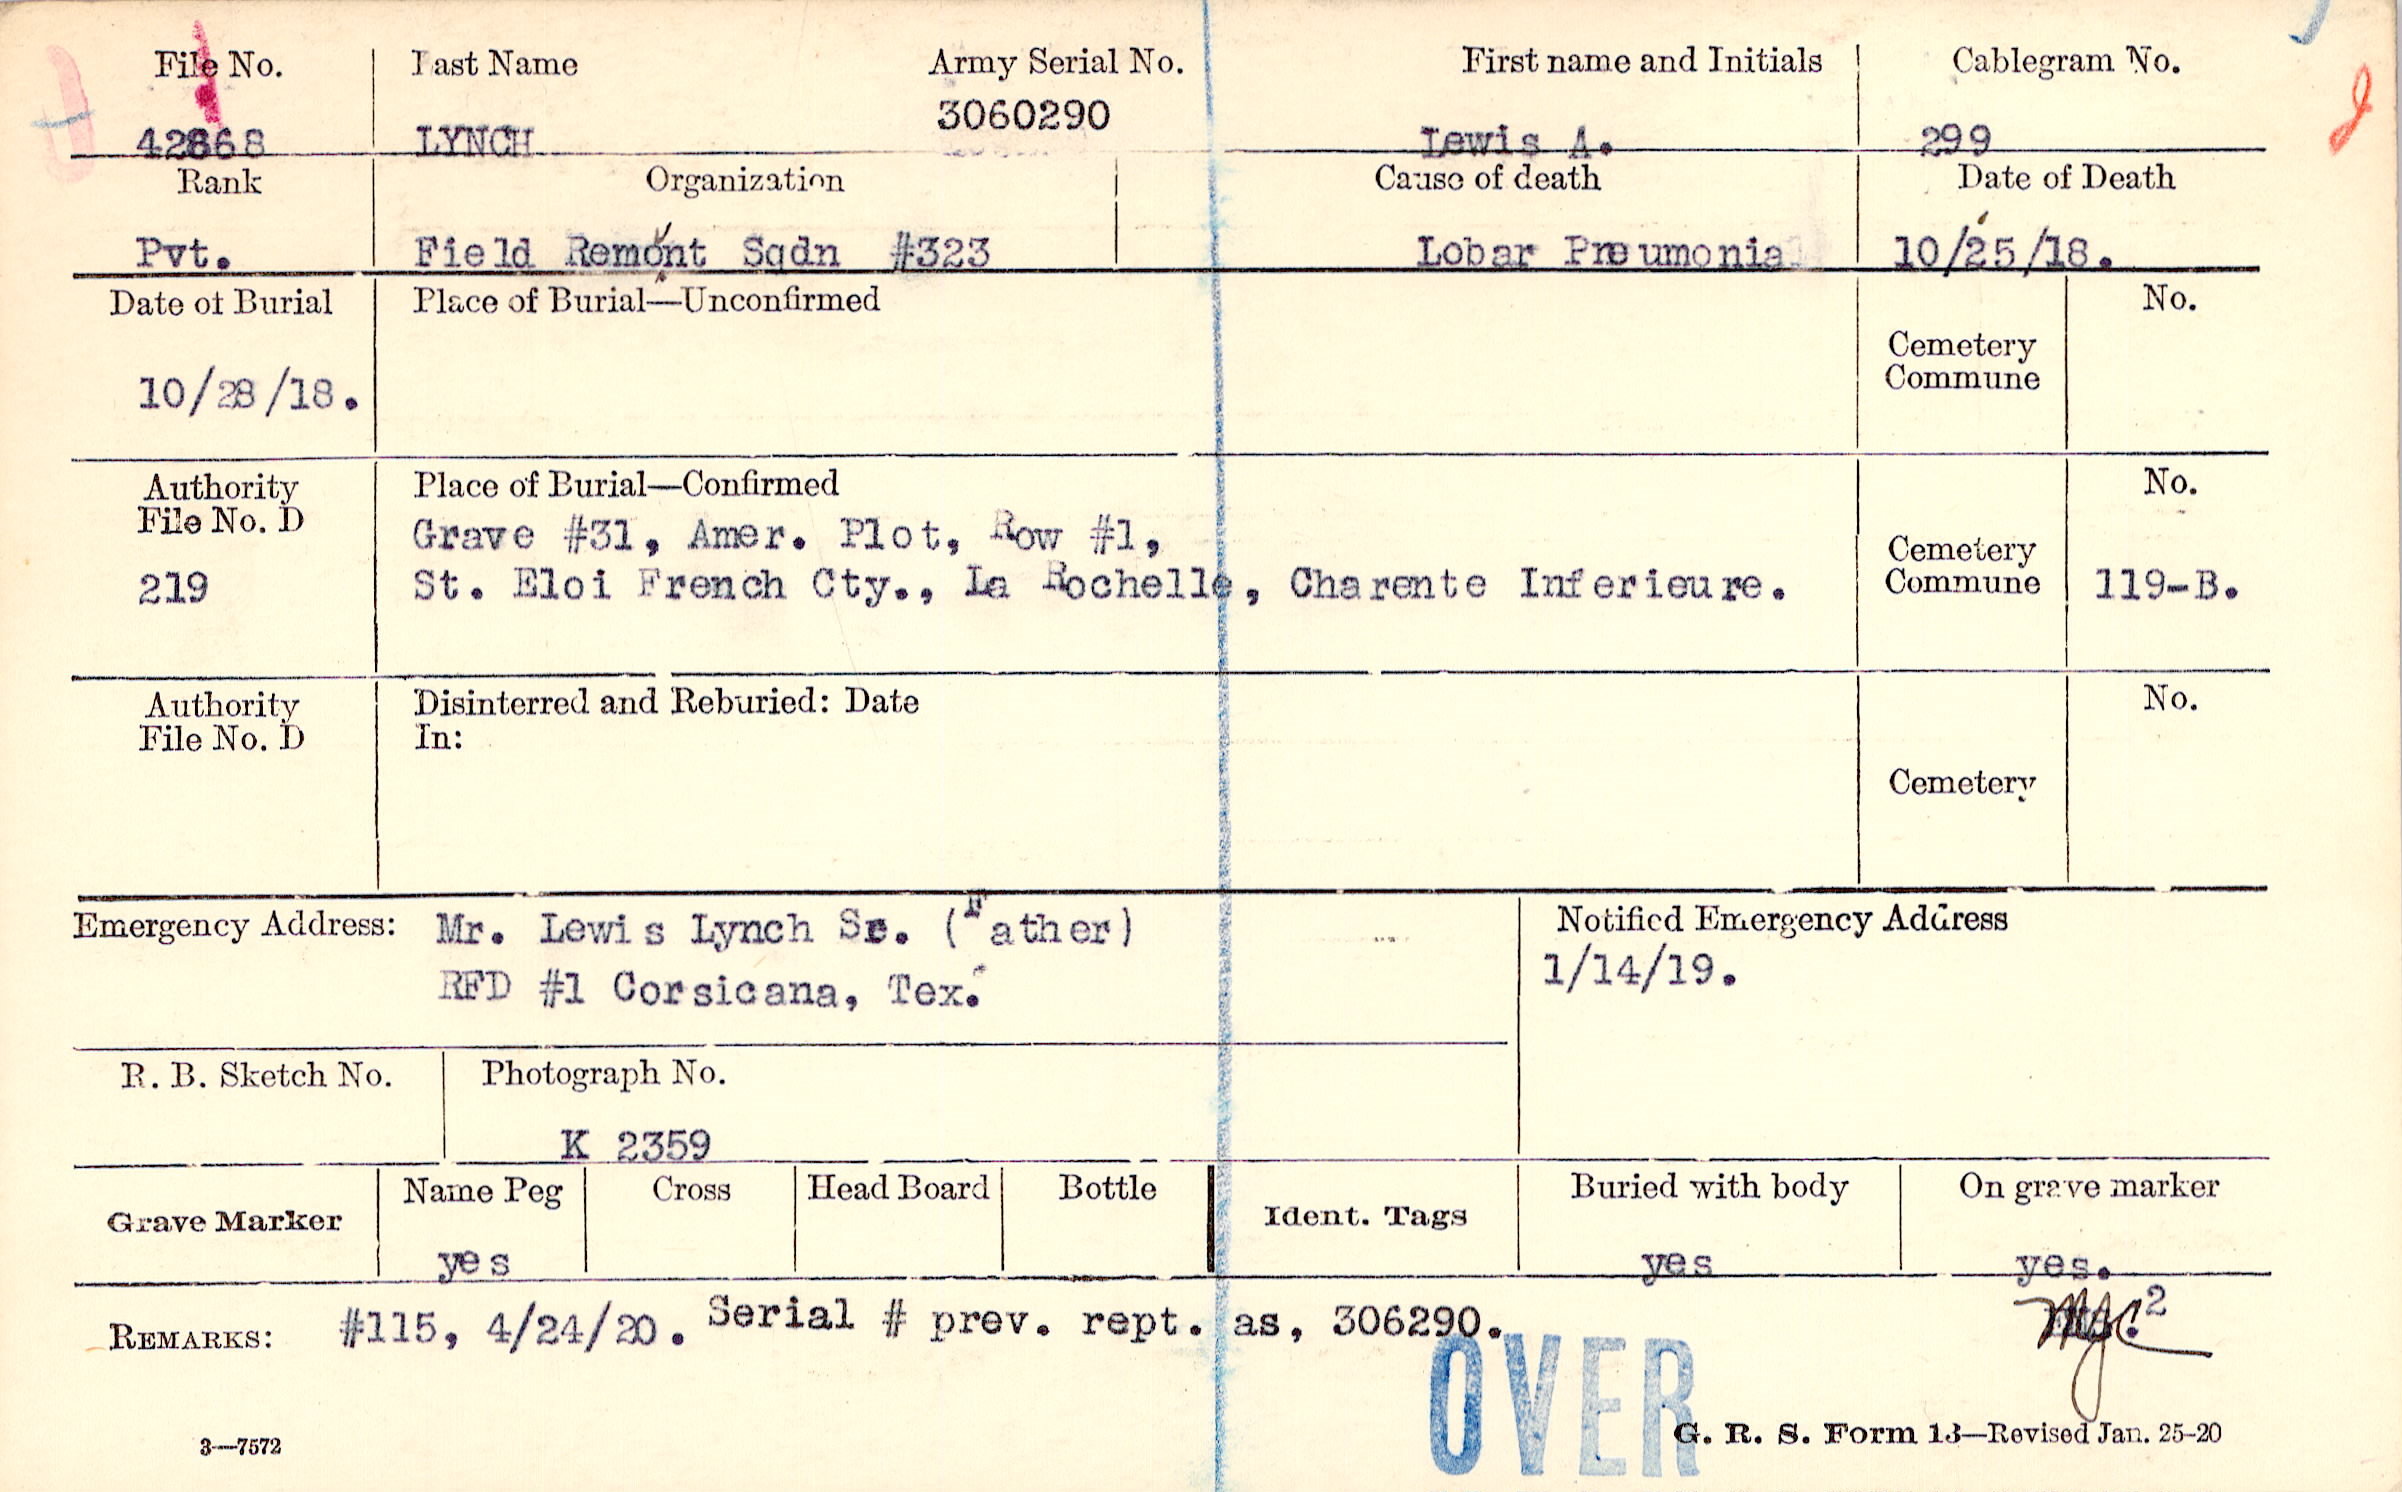 File No. Last Name Army Serial No. First name and Initials Cablegram No.
42868 LYNCH 3060290 Lewis A. 299
Rank Organization Cause of death Date of Death
Pvt. Field Remont Sqdn #323 Lobar Pneumonia 10/25/18.
Date of Burial Place of Burial—Unconfirmed No.
Cemetery
Commune
10/28/18.
Authority Place of Burial—Confirmed No.
File No. D
Grave #31, Amer. Plot, Row #1,
Cemetery
219 St. Eloi French Cty., La Rochelle, Charente Inferieure. Commune 119-B.
Authority Disinterred and Reburied: Date No.
File No. D In:
Cemetery
Emergency Address: Mr. Lewis Lynch Sr. (Father) Notified Emergency Address
RFD #1 Corsicana, Tex. 1/14/19.
R. B. Sketch No. Photograph No.
K 2359
Grave Marker Name Peg Cross Head Board Bottle Ident. Tags Buried with body On grave marker
yes yes yes.
REMARKS: #115, 4/24/20. Serial # prev. rept. as, 306290. 2
OVER
3—7572 G. R. S. Form 13—Revised Jan. 25-20